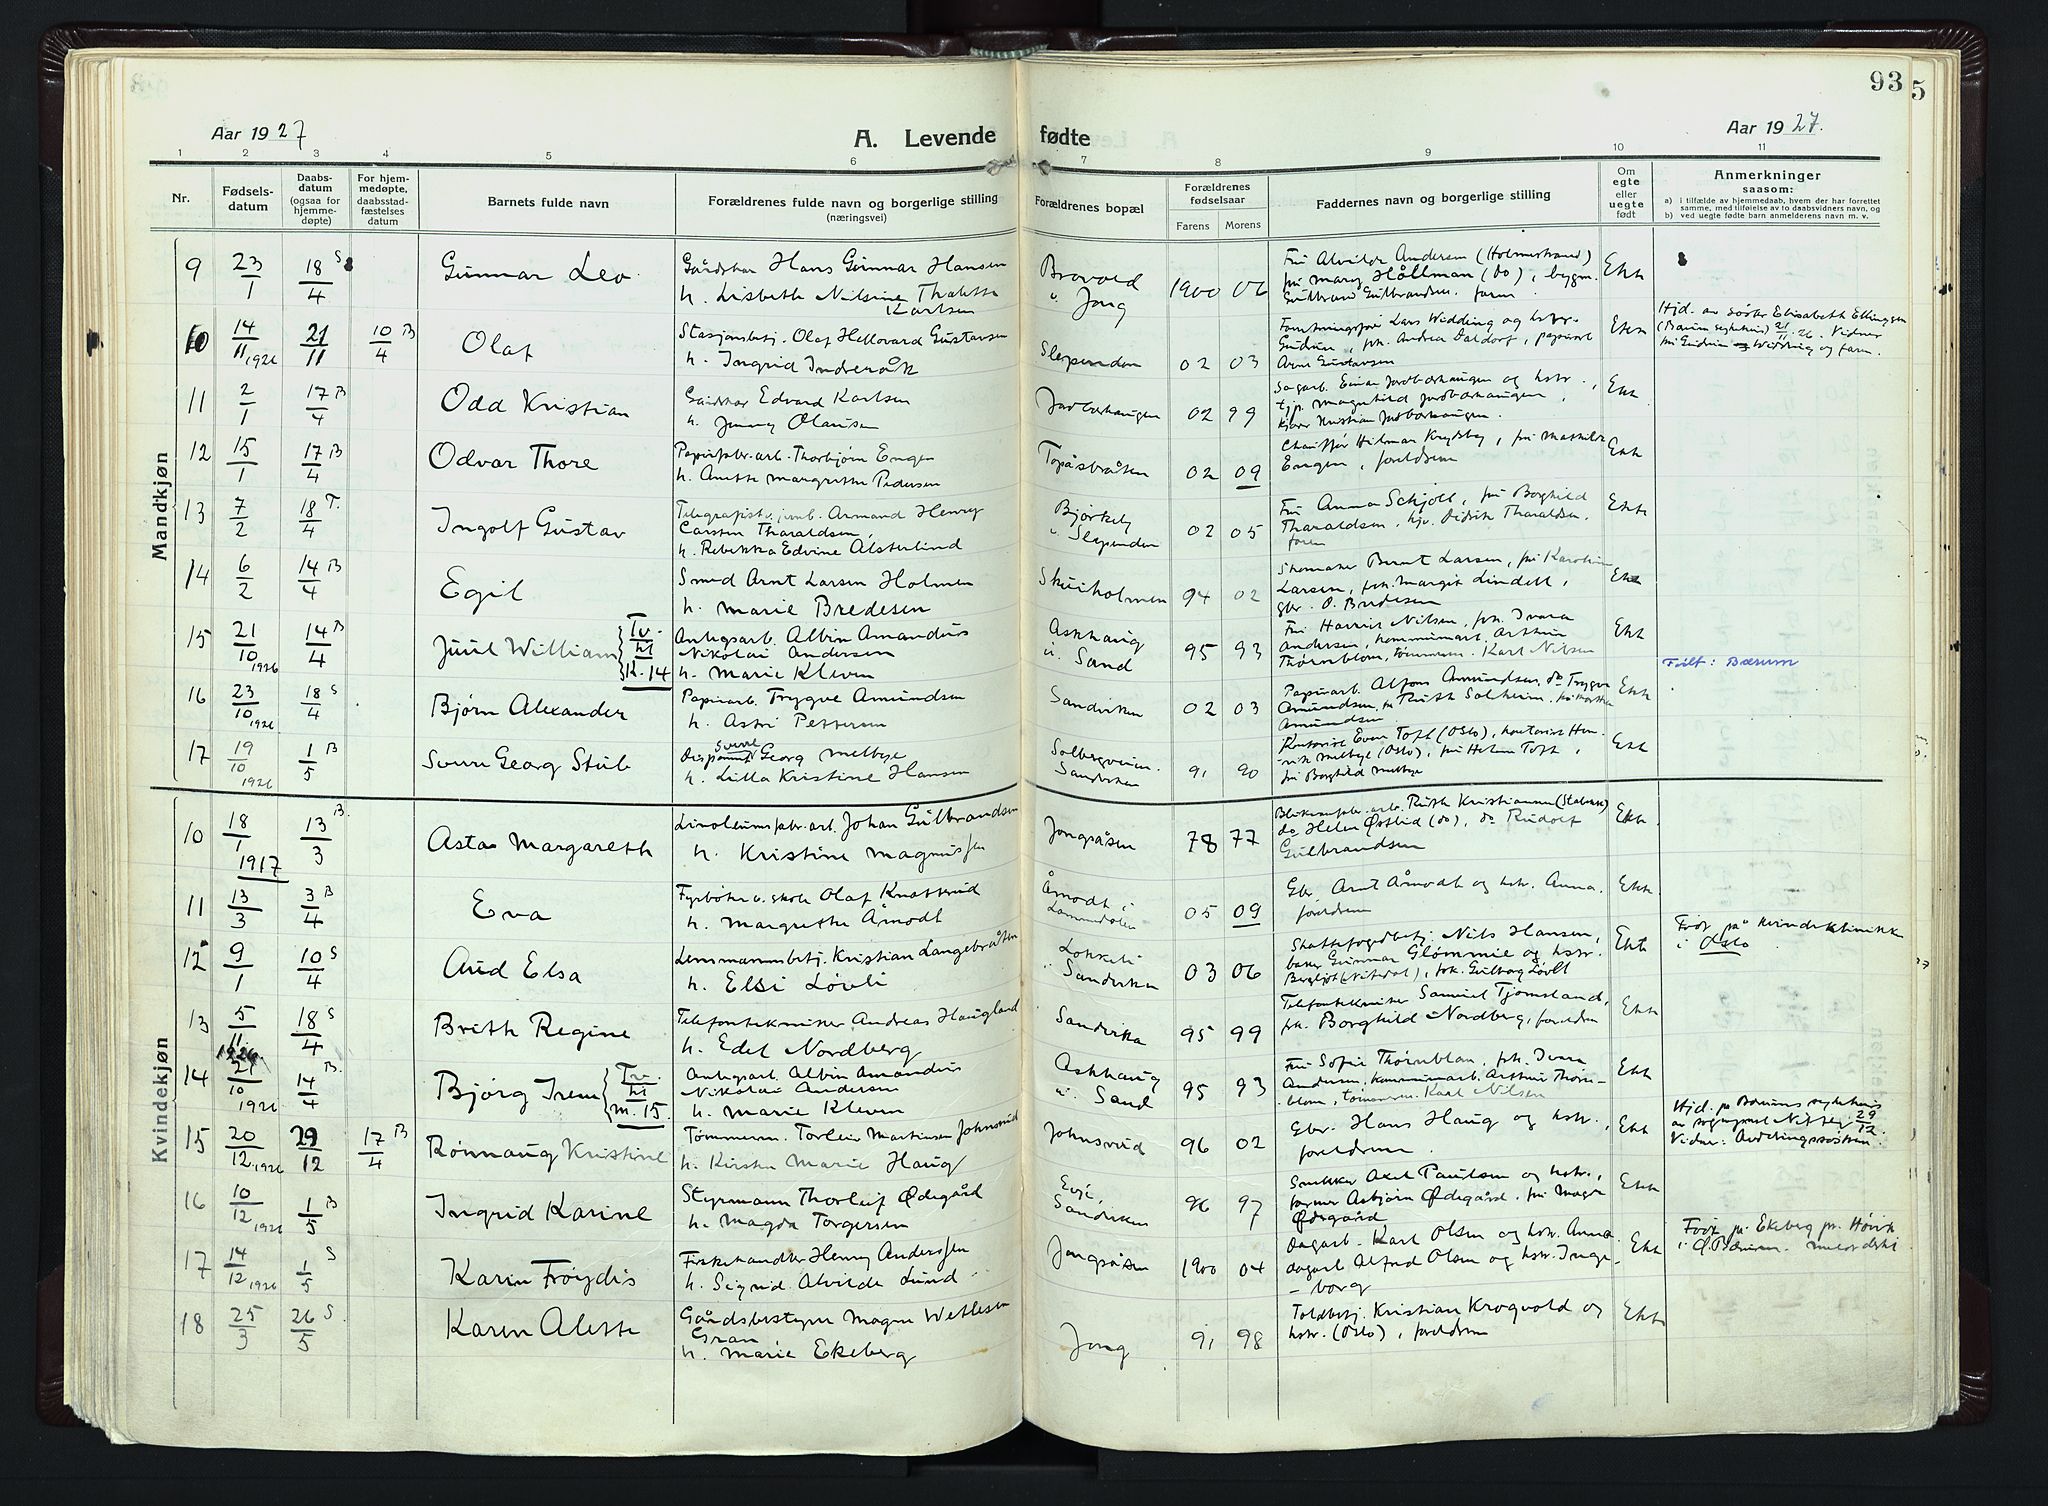 93 5
Aar 1927
A. Levende fødte
Aar 1927.
1 2 3 4 5 6 7 8 9 10 11
Nr.
Fødsels-
datum
Daabs-
datum
(ogsaa for
hjemme-
døpte)
For hjem-
medøpte,
daabsstad-
fæstelses
datum
Barnets fulde navn
Forældrenes fulde navn og borgerlige stilling
(næringsvei)
Forældrenes bopæl
Forældrenes
fødselsaar
Farens Morens
Faddernes navn og borgerlige stilling
Om
egte
eller
uegte
født
Anmerkninger
saasom:
a) i tilfælde av hjemmedaab, hvem der har forrettet
samme, med tilføielse av to daabsvidners navn, og
b) ved uegte fødte barn anmelderens navn m. v.
Mandkjøn
9 23/1 18/4 S Gunnar Leo
Gårdskar Hans Gunnar Hansen
h. Lisbeth Nilsine Thalette
Karlsen
Brovold
v. Jong
1900 06
Fru Alvilde Andersen (Holmestrand)
fru Mary Hållman (do), bygm.
Gulbrand Gulbrandsen. faren
Ekte
10 14/11 1926 21/11 10/4 B Olaf
Stasjonsbetj. Olaf Hellovard Gustavsen
h. Ingrid Indreråk
Slependen
02 03
Forretningsfører Lars Widding og hstr.
Gudrun, frk. Andrea Daldorf, papirarb
Arne Gustavsen
Ekte
Hjd. av søster Elisabeth Ellingsen
(Bærum sykehus) 21/11 26. Vidner
fru Gudrun Widding og faren.
11 2/1 17/4 B Odd Kristian
Gårdskar Edvard Karlsen
h. Jenny Olausen
Jordbærhaugen
02 99
Sagarb. Einar Jordbærhaugen og hstr.,
tjp. Magnhild Jordbærhaugen,
kjører Kristian Jordbærhaugen.
Ekte
12 15/1 17/4 B Odvar Thore
Papirfabr.arb. Thorbjørn Engen
h. Anette Margrethe Pedersen
Topåsbråten
02 09
Chauffør Hilmar Krydsby, fru Mathilde
Engen, foreldrene
Ekte
13 7/2 18/4 T. Ingolf Gustav
Telegrafist v. jernb. Armand Henry
Carsten Tharaldsen,
h. Rebekka Edvine Alsterlind
Bjørkely
v. Slependen
02 05
Fru Anna Schjøll, fru Borghild
Tharaldsen, hjv. Didrik Tharaldsen,
faren
Ekte
14 6/2 14/4 B Egil
Smed Arnt Larsen Holmen
h. Marie Bredesen
Skuiholmen
94 02
Skomaker Bernt Larsen, fru Karoline
Larsen, frk. Margit Lindell,
gbr. O. Bredesen
Ekte
15 21/10 1926 14/4 B Juul William Tv. til K. 14
Anlegsarb. Albin Amandus
Nikolai Andersen
h. Marie Kleven
Askhaug
v. Sand
95 93
Fru Harriet Nilsen, frk. Ivara
Andersen, kommunearb. Arthur
Thørnblom, tømmerm. Karl Nilsen
Ekte
Født: Bærum
16 23/10 1926 18/4 S Bjørn Alexander
Papirarb. Trygve Amundsen
h. Astri Pettersen
Sandviken
02 03
Papirarb. Alfons Amundsen, do Trygve
Amundsen, fr Ruth Solheim, fru Martha
Amundsen
Ekte
17 19/10 1926 1/5 B Svenn Georg Stub
Disponent Georg Melbye
h. Lilla Kristine Hansen
Solbergveien.
Sandviken
91 90
Kontorist Even Toft (Oslo), kontorist Hen-
rik Melbye (Oslo), fru Helene Toft,
fru Borghild Melbye
Ekte
Kvindekjøn
10 18/1 1917 13/3 B. Asta Margareth
Linoleumsfabr.arb. Johan Gulbrandsen
h. Kristine Magnussen
Jongsåsen
78 77
Blikemb.fabr. arb. Ruth Kristiansen (Stabekk)
do Helen Østlid (do), do Rudolf
Gulbrandsen
Ekte
11 13/3 3/4 B Eva
Fyrbøter v. skole Olaf Knatterud
h. Margrethe Åmodt
Åmodt i
Lommedalen
05 09
Gbr. Arnt Åmodt og hstr. Anna.
foreldrene
Ekte
12 9/1 10/4 S Aud Elsa
Lensmannsbetj. Kristian Langebråten
h. Elsi Løvli
Løkkeli
v. Sandviken
03 06
Skattefogedbetj. Nils Hansen,
baker Gunnar Glømmie og hstr.
Bergljot (Nitedal), frk. Gulborg Løvli
Ekte
Født på Kvindeklinikken
i Oslo
13 5/11 1926 18/4 S Brith Regine
Telefontekniker Andreas Haugland
h. Edel Nordberg
Sandvika
95 99
Telefontekniker Samuel Tjomsland,
frk. Borghild Nordberg, foreldrene
Ekte
14 21/10 1926 14/4 B. Bjørg Irene Tv. til M. 15.
Anlegsarb. Albin Amandus
Nikolai Andersen
h. Marie Kleven
Askhaug
v. Sand
95 93
Fru Sofie Thørnblom, frk. Ivara
Andersen, kommunearb. Arthur Thørn-
blom, tømmerm. Karl Nilsen
Ekte
15 20/12 1926 29/12 17/4 B Rønnaug Kristine
Tømmerm. Torleiv Martinsen Johnsrud
h. Kirsten Marie Haug
Johnsrud
96 02
Gbr. Hans Haug og hstr.,
foreldrene.
Ekte
Hjd. på Bærums sykehus
av sogneprest Nissen 29/12.
Vidner: Avdelingssøstrene.
16 10/12 1926 1/5 B Ingrid Karine
Styrmann Thorleif Ødegård
h. Magda Torgersen
Evje,
Sandviken
96 97
Snekker Axel Paulsen og hstr.,
former Asbjørn Ødegård. fru Magda
Ødegård
Ekte
17 14/12 1926 1/5 S Karin Frøydis
Fiskehandler Henry Anderssen
h. Sigrid Alvilde Lund
Jongsåsen
1900 04
Dagarb. Karl Olsen og hstr. Anna.
dagarb. Alfred Olsen og hstr. Inge-
borg
Ekte
Født på Ekeberg pr. Høvik
i Ø. Bærum.
18 25/3 26/5 S Karen Alette
Gårdsbestyrer Magne Wetlesen
Gran
h. Marie Ekeberg
Jong
91 98
Toldbetj. Kristian Krogvold og
hstr. (Oslo), foreldrene
Ekte